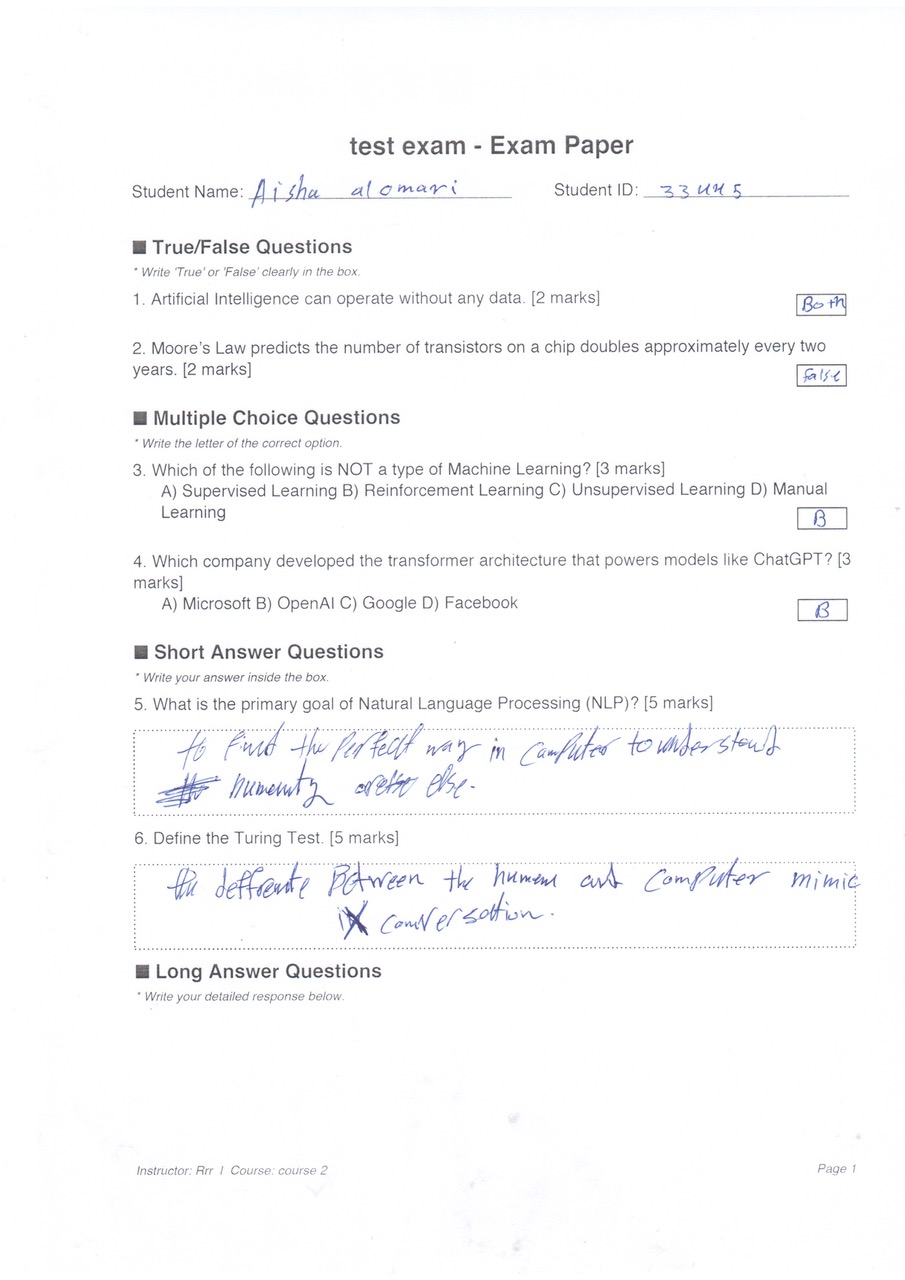 test exam - Exam Paper
Student Name: Aisha alomari Student ID: 33445
■ True/False Questions
* Write 'True' or 'False' clearly in the box.
1. Artificial Intelligence can operate without any data. [2 marks]
Both
2. Moore's Law predicts the number of transistors on a chip doubles approximately every two
years. [2 marks]
False
■ Multiple Choice Questions
* Write the letter of the correct option.
3. Which of the following is NOT a type of Machine Learning? [3 marks]
A) Supervised Learning B) Reinforcement Learning C) Unsupervised Learning D) Manual
Learning
B
4. Which company developed the transformer architecture that powers models like ChatGPT? [3
marks]
A) Microsoft B) OpenAI C) Google D) Facebook
B
■ Short Answer Questions
* Write your answer inside the box.
5. What is the primary goal of Natural Language Processing (NLP)? [5 marks]
to Find the Perfect way in Computer to understand
humenity else.
6. Define the Turing Test. [5 marks]
the Between the humen and Computer mimic
conversation.
■ Long Answer Questions
* Write your detailed response below.
Instructor: Rrr | Course: course 2 Page 1